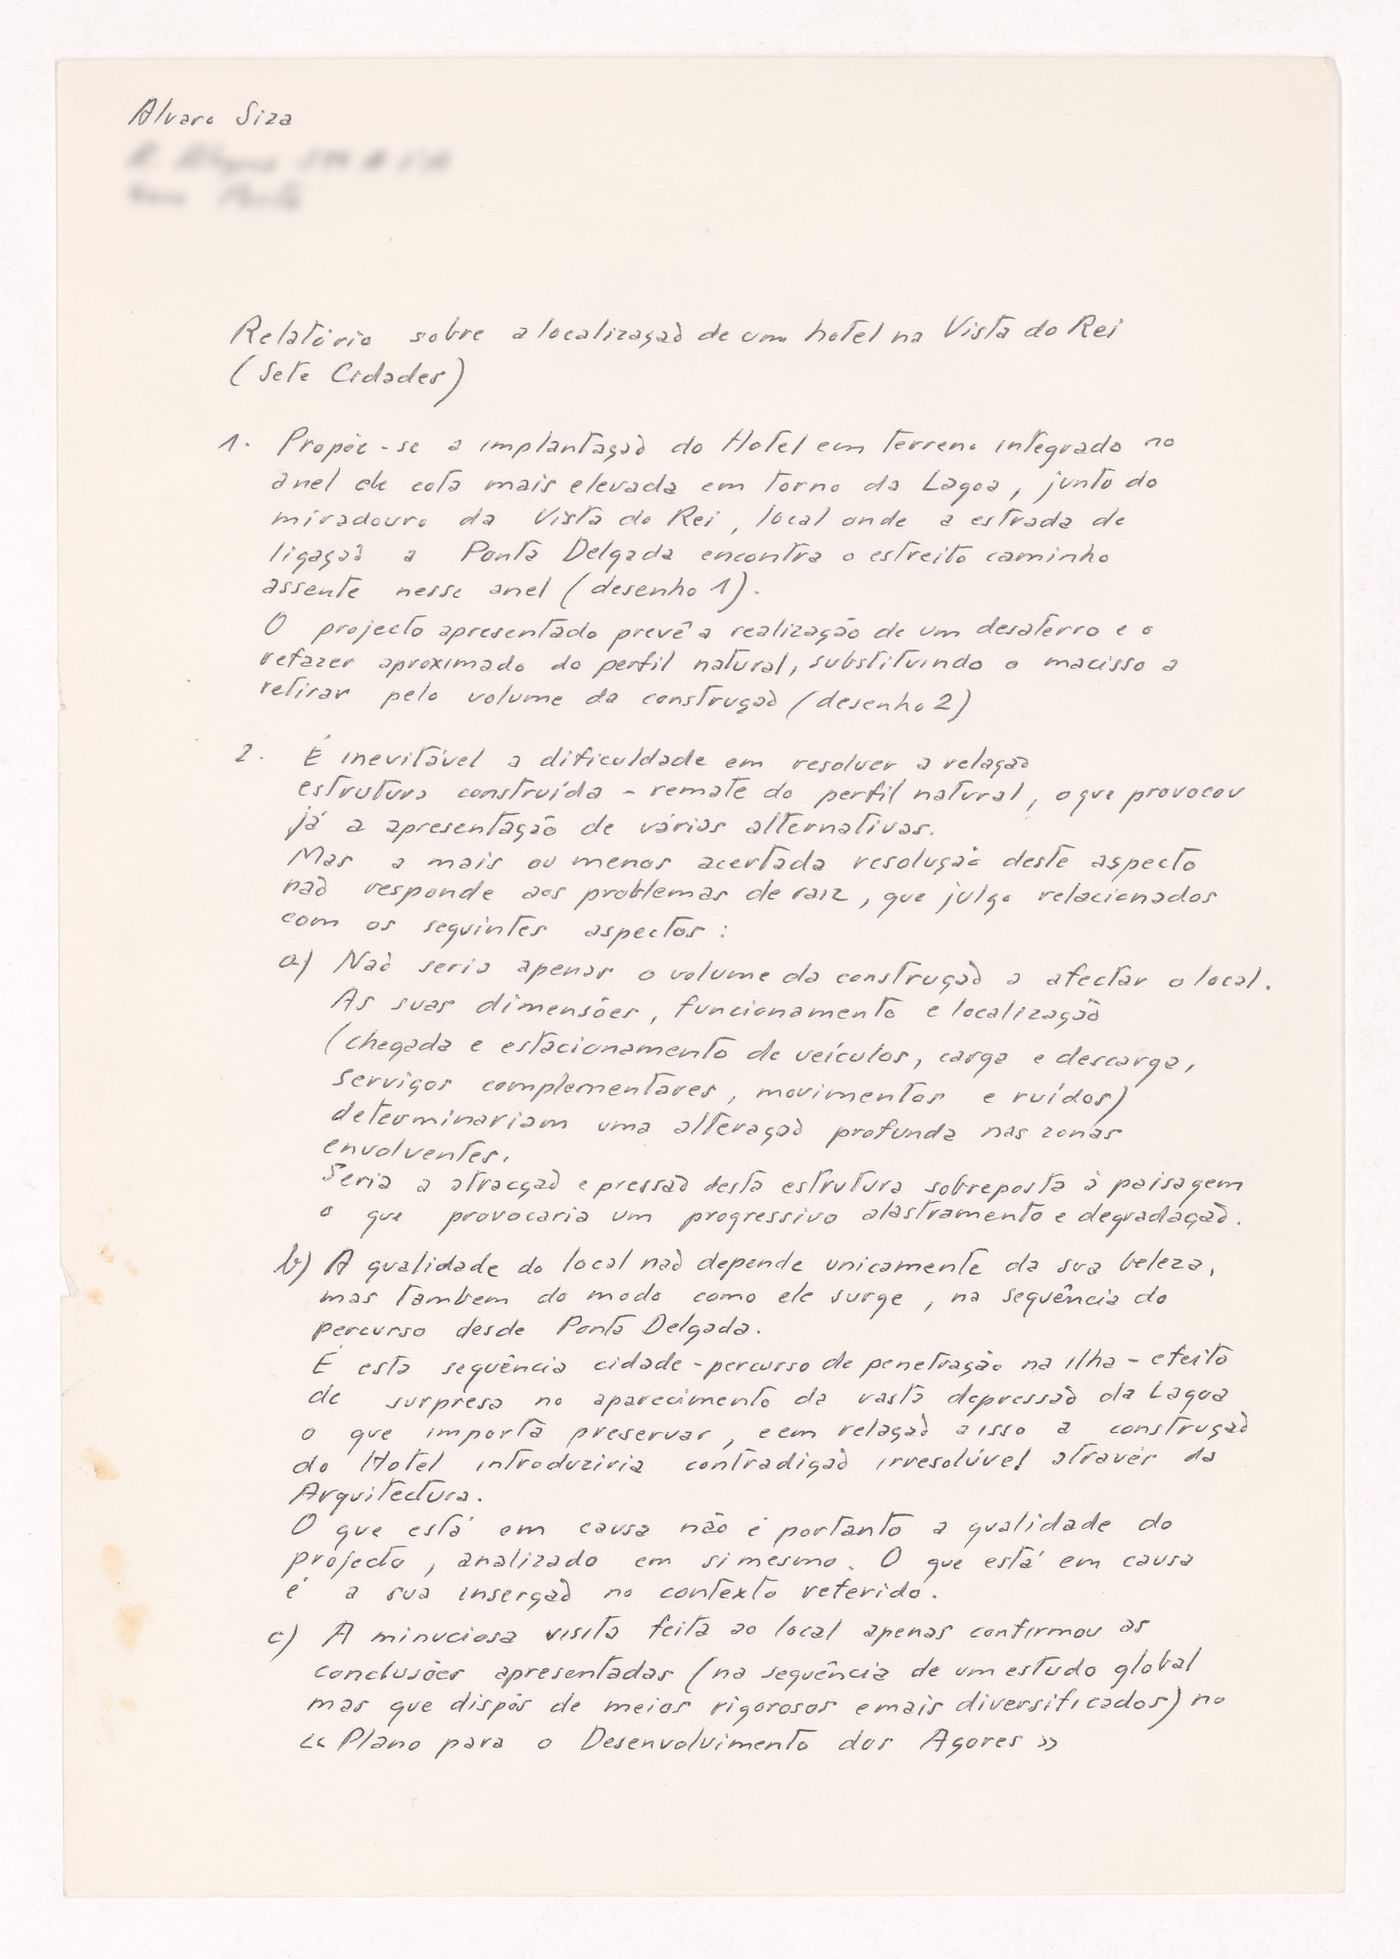 Alvaro Siza
Relatório sobre a localização de um hotel na Vista do Rei
(Sete Cidades)
1. Propõe-se a implantação do Hotel em terreno integrado no
anel de cota mais elevada em torno da Lagoa, junto do
miradouro da Vista do Rei, local onde a estrada de
ligação a Ponta Delgada encontra o estreito caminho
assente nesse anel (desenho 1).
O projecto apresentado prevê a realização de um desaterro e o
refazer aproximado do perfil natural, substituindo o macisso a
retirar pelo volume da construção (desenho 2)
2. É inevitável a dificuldade em resolver a relação
estrutura construída - remate do perfil natural, o que provocou
já a apresentação de várias alternativas.
Mas a mais ou menos acertada resolução deste aspecto
não responde aos problemas de raiz, que julgo relacionados
com os seguintes aspectos:
a) Não seria apenas o volume da construção a afectar o local.
As suas dimensões, funcionamento e localização
(chegada e estacionamento de veículos, carga e descarga,
serviços complementares, movimentos e ruídos)
determinariam uma alteração profunda nas zonas
envolventes.
Seria a atracção e pressão desta estrutura sobreposta à paisagem
o que provocaria um progressivo alastramento e degradação.
b) A qualidade do local não depende unicamente da sua beleza,
mas tambem do modo como ele surge, na sequência do
percurso desde Ponta Delgada.
É esta sequência cidade-percurso de penetração na ilha - efeito
de surpresa no aparecimento da vasta depressão da Lagoa
o que importa preservar, e em relação a isso a construção
do Hotel introduziria contradição irresolúvel através da
Arquitectura.
O que está em causa não é portanto a qualidade do
projecto, analizado em si mesmo. O que está em causa
é a sua inserção no contexto referido.
c) A minuciosa visita feita ao local apenas confirmou as
conclusões apresentadas (na sequência de um estudo global
mas que dispôs de meios rigorosos e mais diversificados) no
<< Plano para o Desenvolvimento dos Açores >>